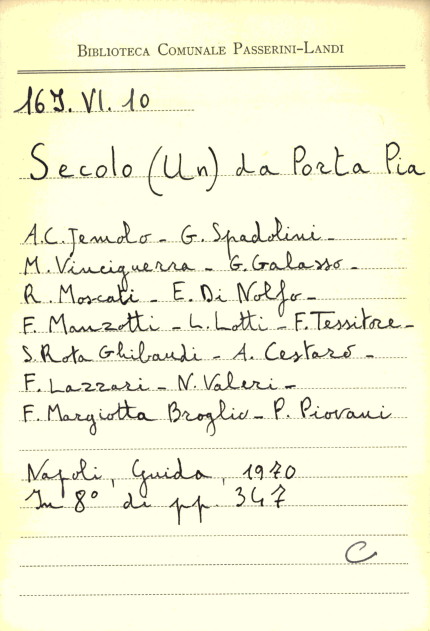 BIBLIOTECA COMUNALE PASSERINI-LANDI
16J. VI. 10
Secolo (Un) da Porta Pia
A.C. Jemolo - G. Spadolini -
M. Vinciguerra - G. Galasso -
R. Moscati - E. Di Nolfo -
F. Manzotti - L. Lotti - F. Tessitore -
S. Rota Ghibaudi - A. Cestaro -
F. Lazzari - N. Valeri -
F. Margiotta Broglio - P. Piovani
Napoli, Guida, 1970
In 8° di pp. 347
C